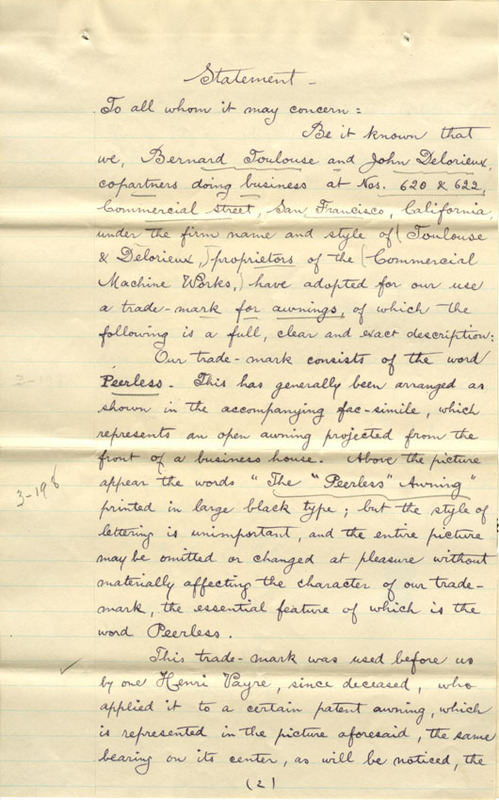 Statement -
To all whom it may concern :
Be it known that
we, Bernard Toulouse and John Delorieux,
copartners doing business at Nos. 620 & 622,
Commercial street, San Francisco, California,
under the firm name and style of (Toulouse
& Delorieux,) proprietors of the (Commercial
Machine Works,) have adopted for our use
a trade-mark for awnings, of which the
following is a full, clear and exact description:
Our trade-mark consists of the word
Peerless. This has generally been arranged as
shown in the accompanying fac-simile, which
represents an open awning projected from the
front of a business house. Above the picture
appear the words "The "Peerless" Awning"
3-198
printed in large black type ; but the style of
lettering is unimportant, and the entire picture
may be omitted or changed at pleasure without
materially affecting the character of our trade-
mark, the essential feature of which is the
word Peerless.
This trade-mark was used before us
by one Henri Payre, since deceased, who
applied it to a certain patent awning, which
is represented in the picture aforesaid, the same
bearing on its center, as will be noticed, the
(2)